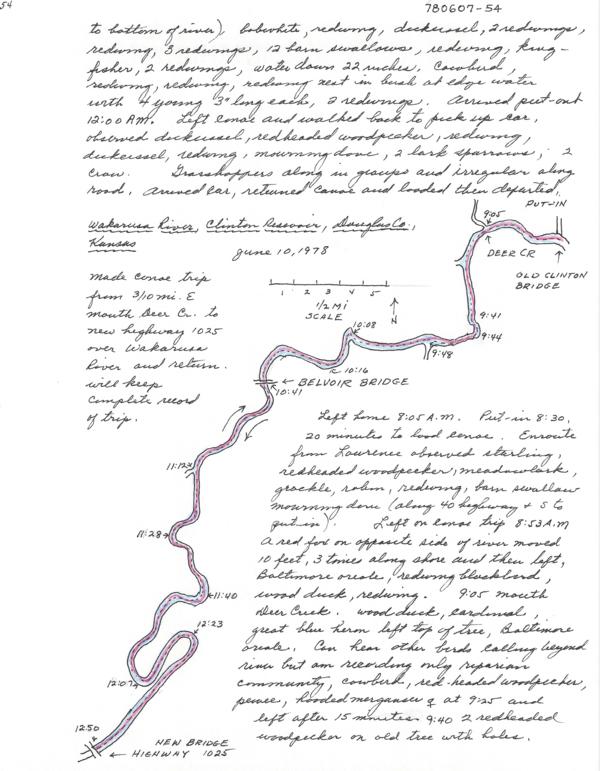 54
780607-54
to bottom of river), bobwhite, redwing, dickcissel, 2 redwings,
redwing, 3 redwings, 12 barn swallows, redwing, king-
fisher, 2 redwings, water down 22 inches. Cowbird,
redwing, redwing, redwing nest in bush at edge water
with 4 young 3" long each, 2 redwings. Arrived put-out
12:00 A.M. Left canoe and walked back to pick up car,
observed dickcissel, redheaded woodpecker, redwing,
dickcissel, redwing, mourning dove, 2 lark sparrows, 2
crow. Grasshoppers along in groups and irregular along
road. Arrived car, returned canoe and loaded then departed.
Wakarusa River, Clinton Reservoir, Douglas Co.,
Kansas
June 10, 1978
made canoe trip
from 3/10 mi. E
mouth Deer Cr. to
new highway 1025
over Wakarusa
River and return.
will keep
complete record
of trip.
1 2 3 4 5
1/2 MI
SCALE
N
PUT-IN
9:05
DEER CR
OLD CLINTON
BRIDGE
9:41
9:44
9:48
10:08
10:16
← BELVOIR BRIDGE
10:41
11:12
11:28
11:40
12:23
12:07
12:50
NEW BRIDGE
← HIGHWAY 1025
Left home 8:05 A.M. Put-in 8:30.
20 minutes to load canoe. Enroute
from Lawrence observed starling,
redheaded woodpecker, meadowlark,
grackle, robin, redwing, barn swallow
mourning dove (along 40 highway + 5 to
put-in). Left on canoe trip 8:53 A.M
A red fox on opposite side of river moved
10 feet, 3 times along shore and then left,
Baltimore oriole, redwing blackbird,
wood duck, redwing. 9:05 mouth
Deer Creek. wood duck, cardinal,
great blue heron left top of tree, Baltimore
oriole. Can hear other birds calling beyond
river but am recording only riparian
community, cowbird, red-headed woodpecker,
pewee, hooded merganser ♀ at 9:25 and
left after 15 minutes 9:40 2 redheaded
woodpecker on old tree with holes.